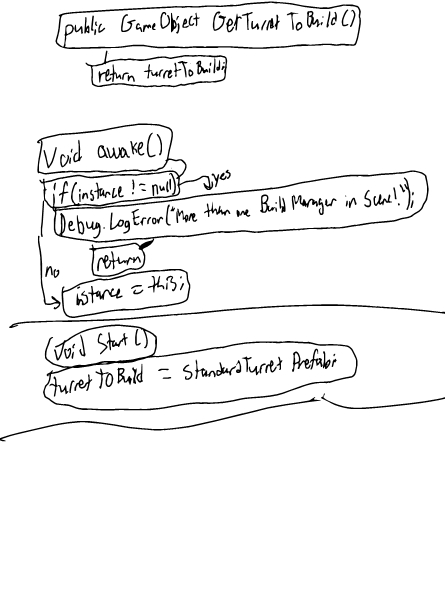 public GameObject GetTurret To Build ()
return turretToBuild;
Void awake()
if (instance != null)
yes
Debug.LogError("More than one Build Manager in Scene!");
return
no
instance = this;
Void Start ()
turret TO Build = Standard Turret Prefab;